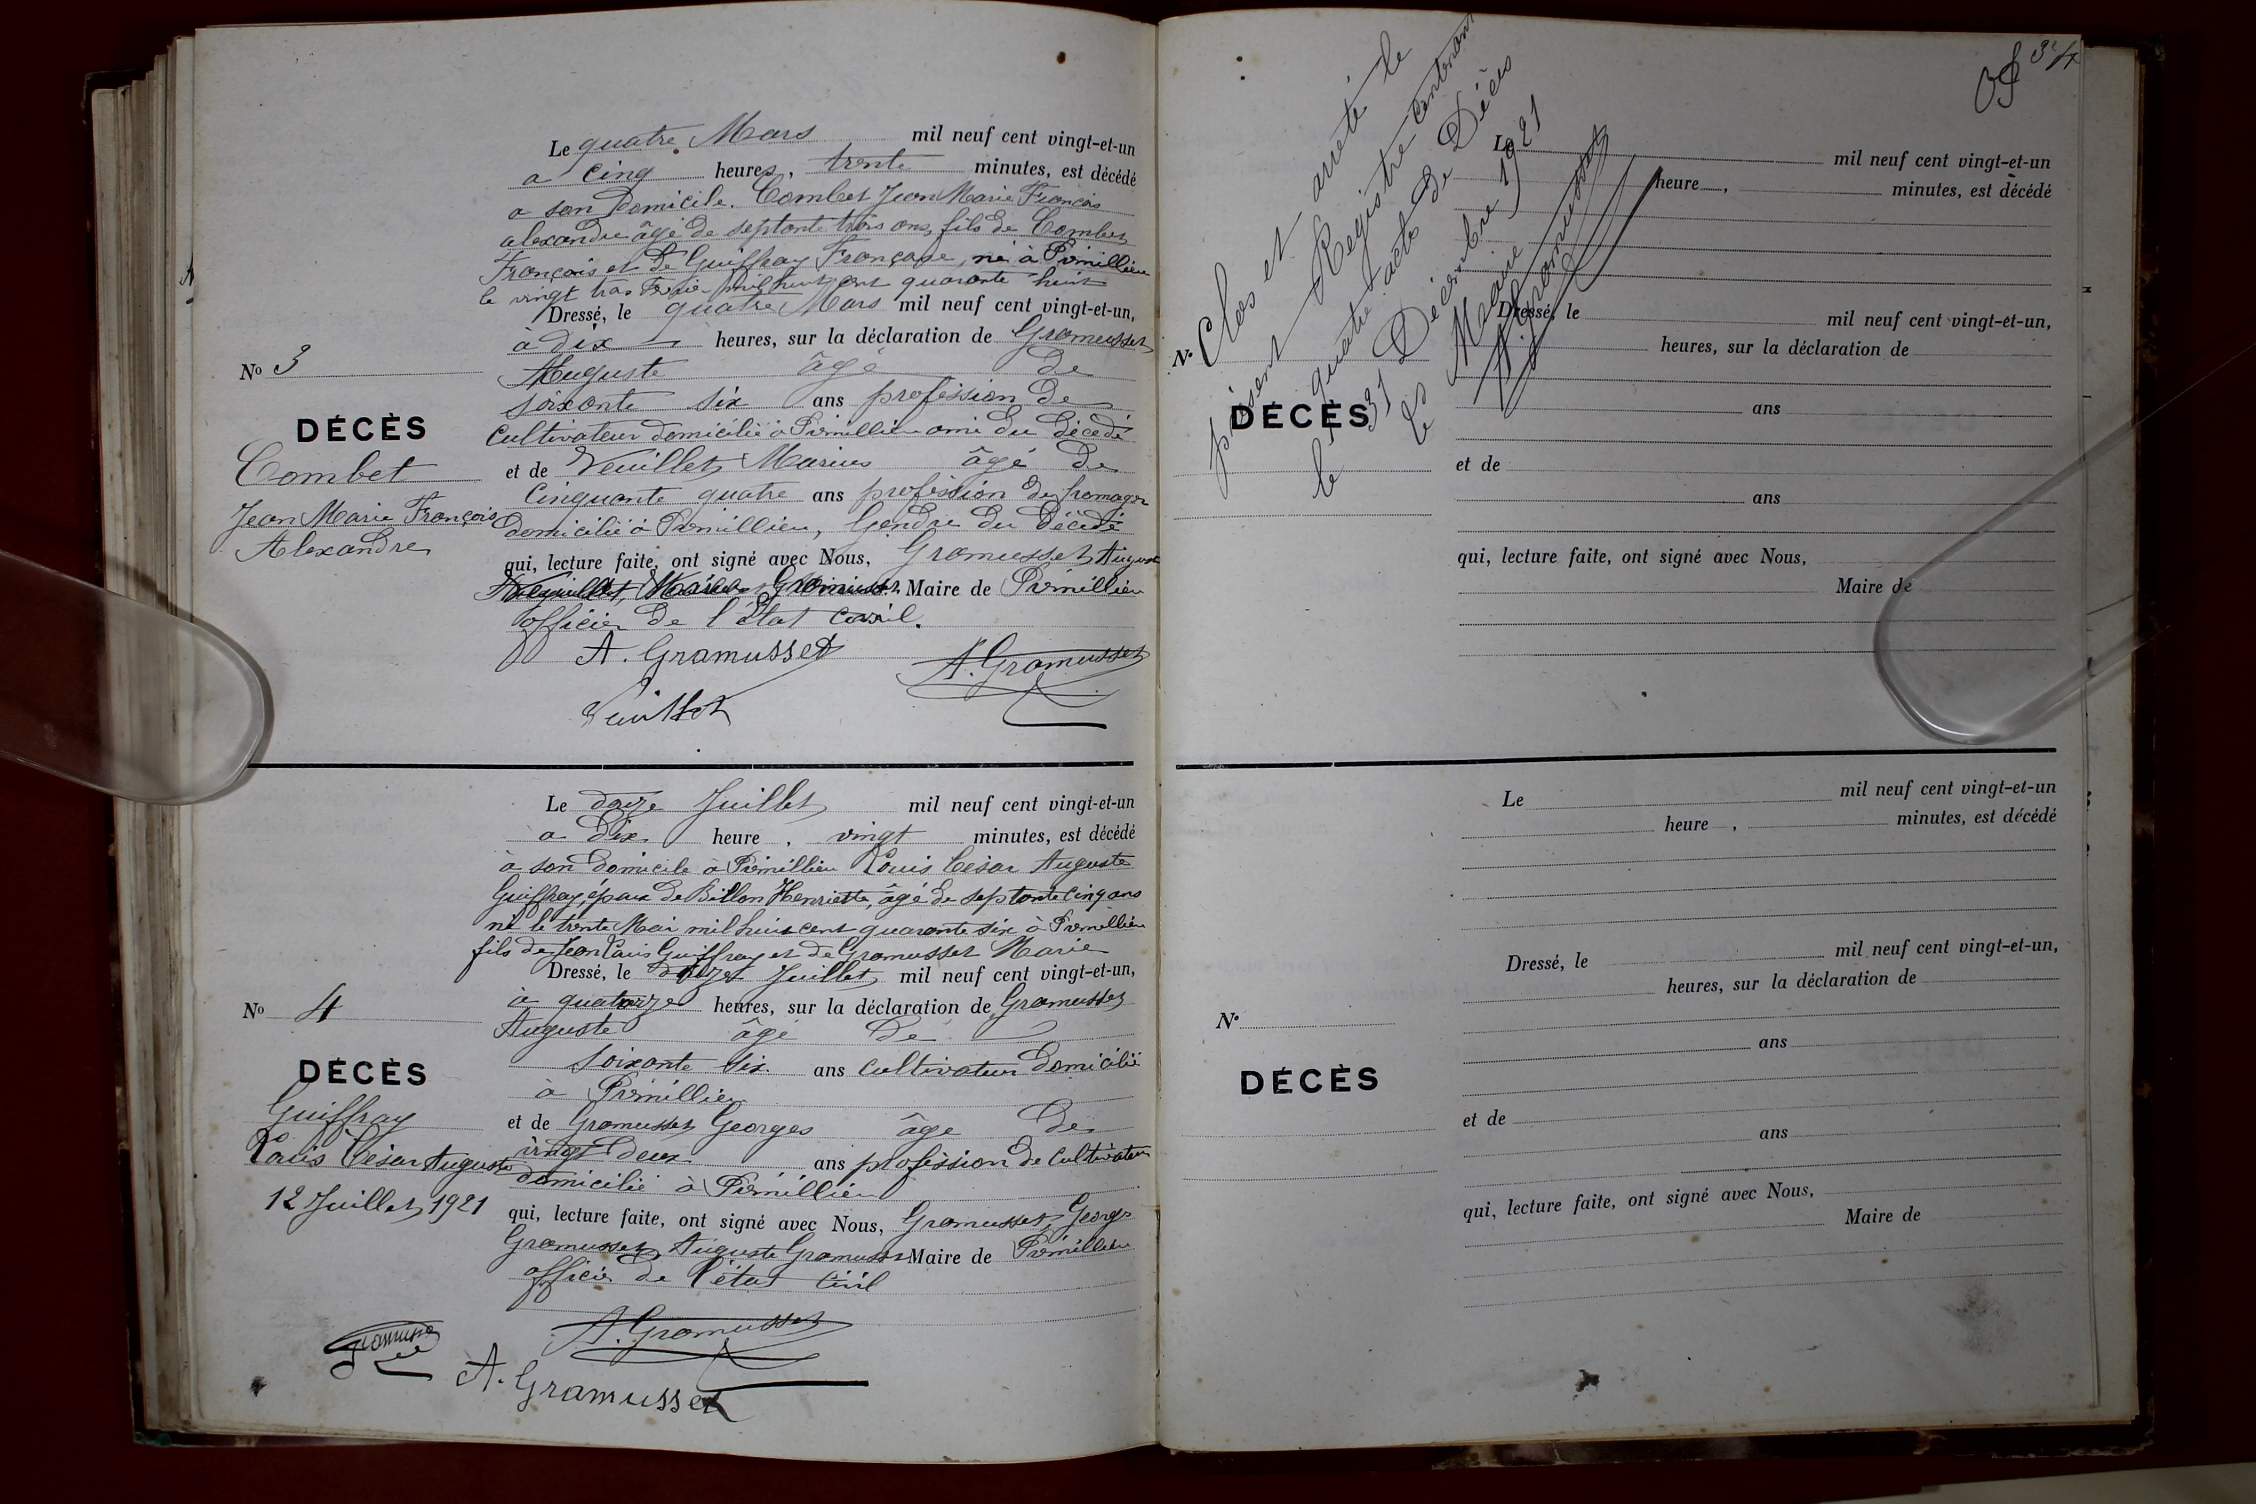 Le quatre Mars mil neuf cent vingt-et-un
a cinq heures, trente minutes, est décédé
a son Domicile. Combet Jean Marie François
alexandre âgé de septante trois ans, fils de Combet
François et de Guiffray Françoise, né à Prémillieu
le vingt trois mil huit cent quarante huit
Dressé, le quatre Mars mil neuf cent vingt-et-un,
à dix heures, sur la déclaration de Gramusset
Auguste âgé de
soixante six ans profession de
Cultivateur domicilié à Prémillieu ami du décédé
et de Veuillet Marius âgé de
Cinquante quatre ans profession de fromager
domicilié à Prémillieu, Gendre du Décédé
qui, lecture faite, ont signé avec Nous, Gramusset Auguste
Maire de Prémillieu
officier de l'état civil.
A. Gramusset
A. Gramusset
Veuillet
No 3
DÉCÈS
Combet
Jean Marie François
Alexandre
Le douze Juillet mil neuf cent vingt-et-un
a dix heure, vingt minutes, est décédé
à son domicile à Prémillieu Louis César Auguste
Guiffray, époux de Billon Henriette, âgé de septante cinq ans
né le trente Mai mil huit cent quarante six à Prémillieu
fils de Jean Louis Guiffray et de Gramusset Marie
Dressé, le douze Juillet mil neuf cent vingt-et-un,
à quatorze heures, sur la déclaration de Gramusset
Auguste âgé de
soixante six ans cultivateur domicilié
à Prémillieu
et de Gramusset Georges âge de
vingt deux ans profession de cultivateur
domicilié à Prémillieu
qui, lecture faite, ont signé avec Nous, Gramusset, George
Gramusset, Auguste Gramusset Maire de Prémillieu
officier de l'état civil
A. Gramusset
A. Gramusset
No 4
DÉCÈS
Guiffray
Louis César Auguste
12 Juillet 1921
34
Clos et arreté le
présent Registre contenant
quatre acte de Décès
le 31 Décembre 1921
Le Maire
A. Gramusset
Le mil neuf cent vingt-et-un
heure, minutes, est décédé
Dressé, le mil neuf cent vingt-et-un,
heures, sur la déclaration de
ans
et de
ans
qui, lecture faite, ont signé avec Nous,
Maire de
N°
DÉCÈS
Le mil neuf cent vingt-et-un
heure, minutes, est décédé
Dressé, le mil neuf cent vingt-et-un,
heures, sur la déclaration de
ans
et de
ans
qui, lecture faite, ont signé avec Nous,
Maire de
N°
DÉCÈS